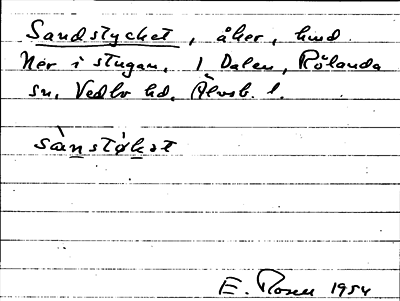 Sandstycket, åker, hmd
Ner i stugan, 1 Dalen, Rölanda
sn, Vedbo hd, Älvsb. l.
sànstǿkət
E. Rosen 1954